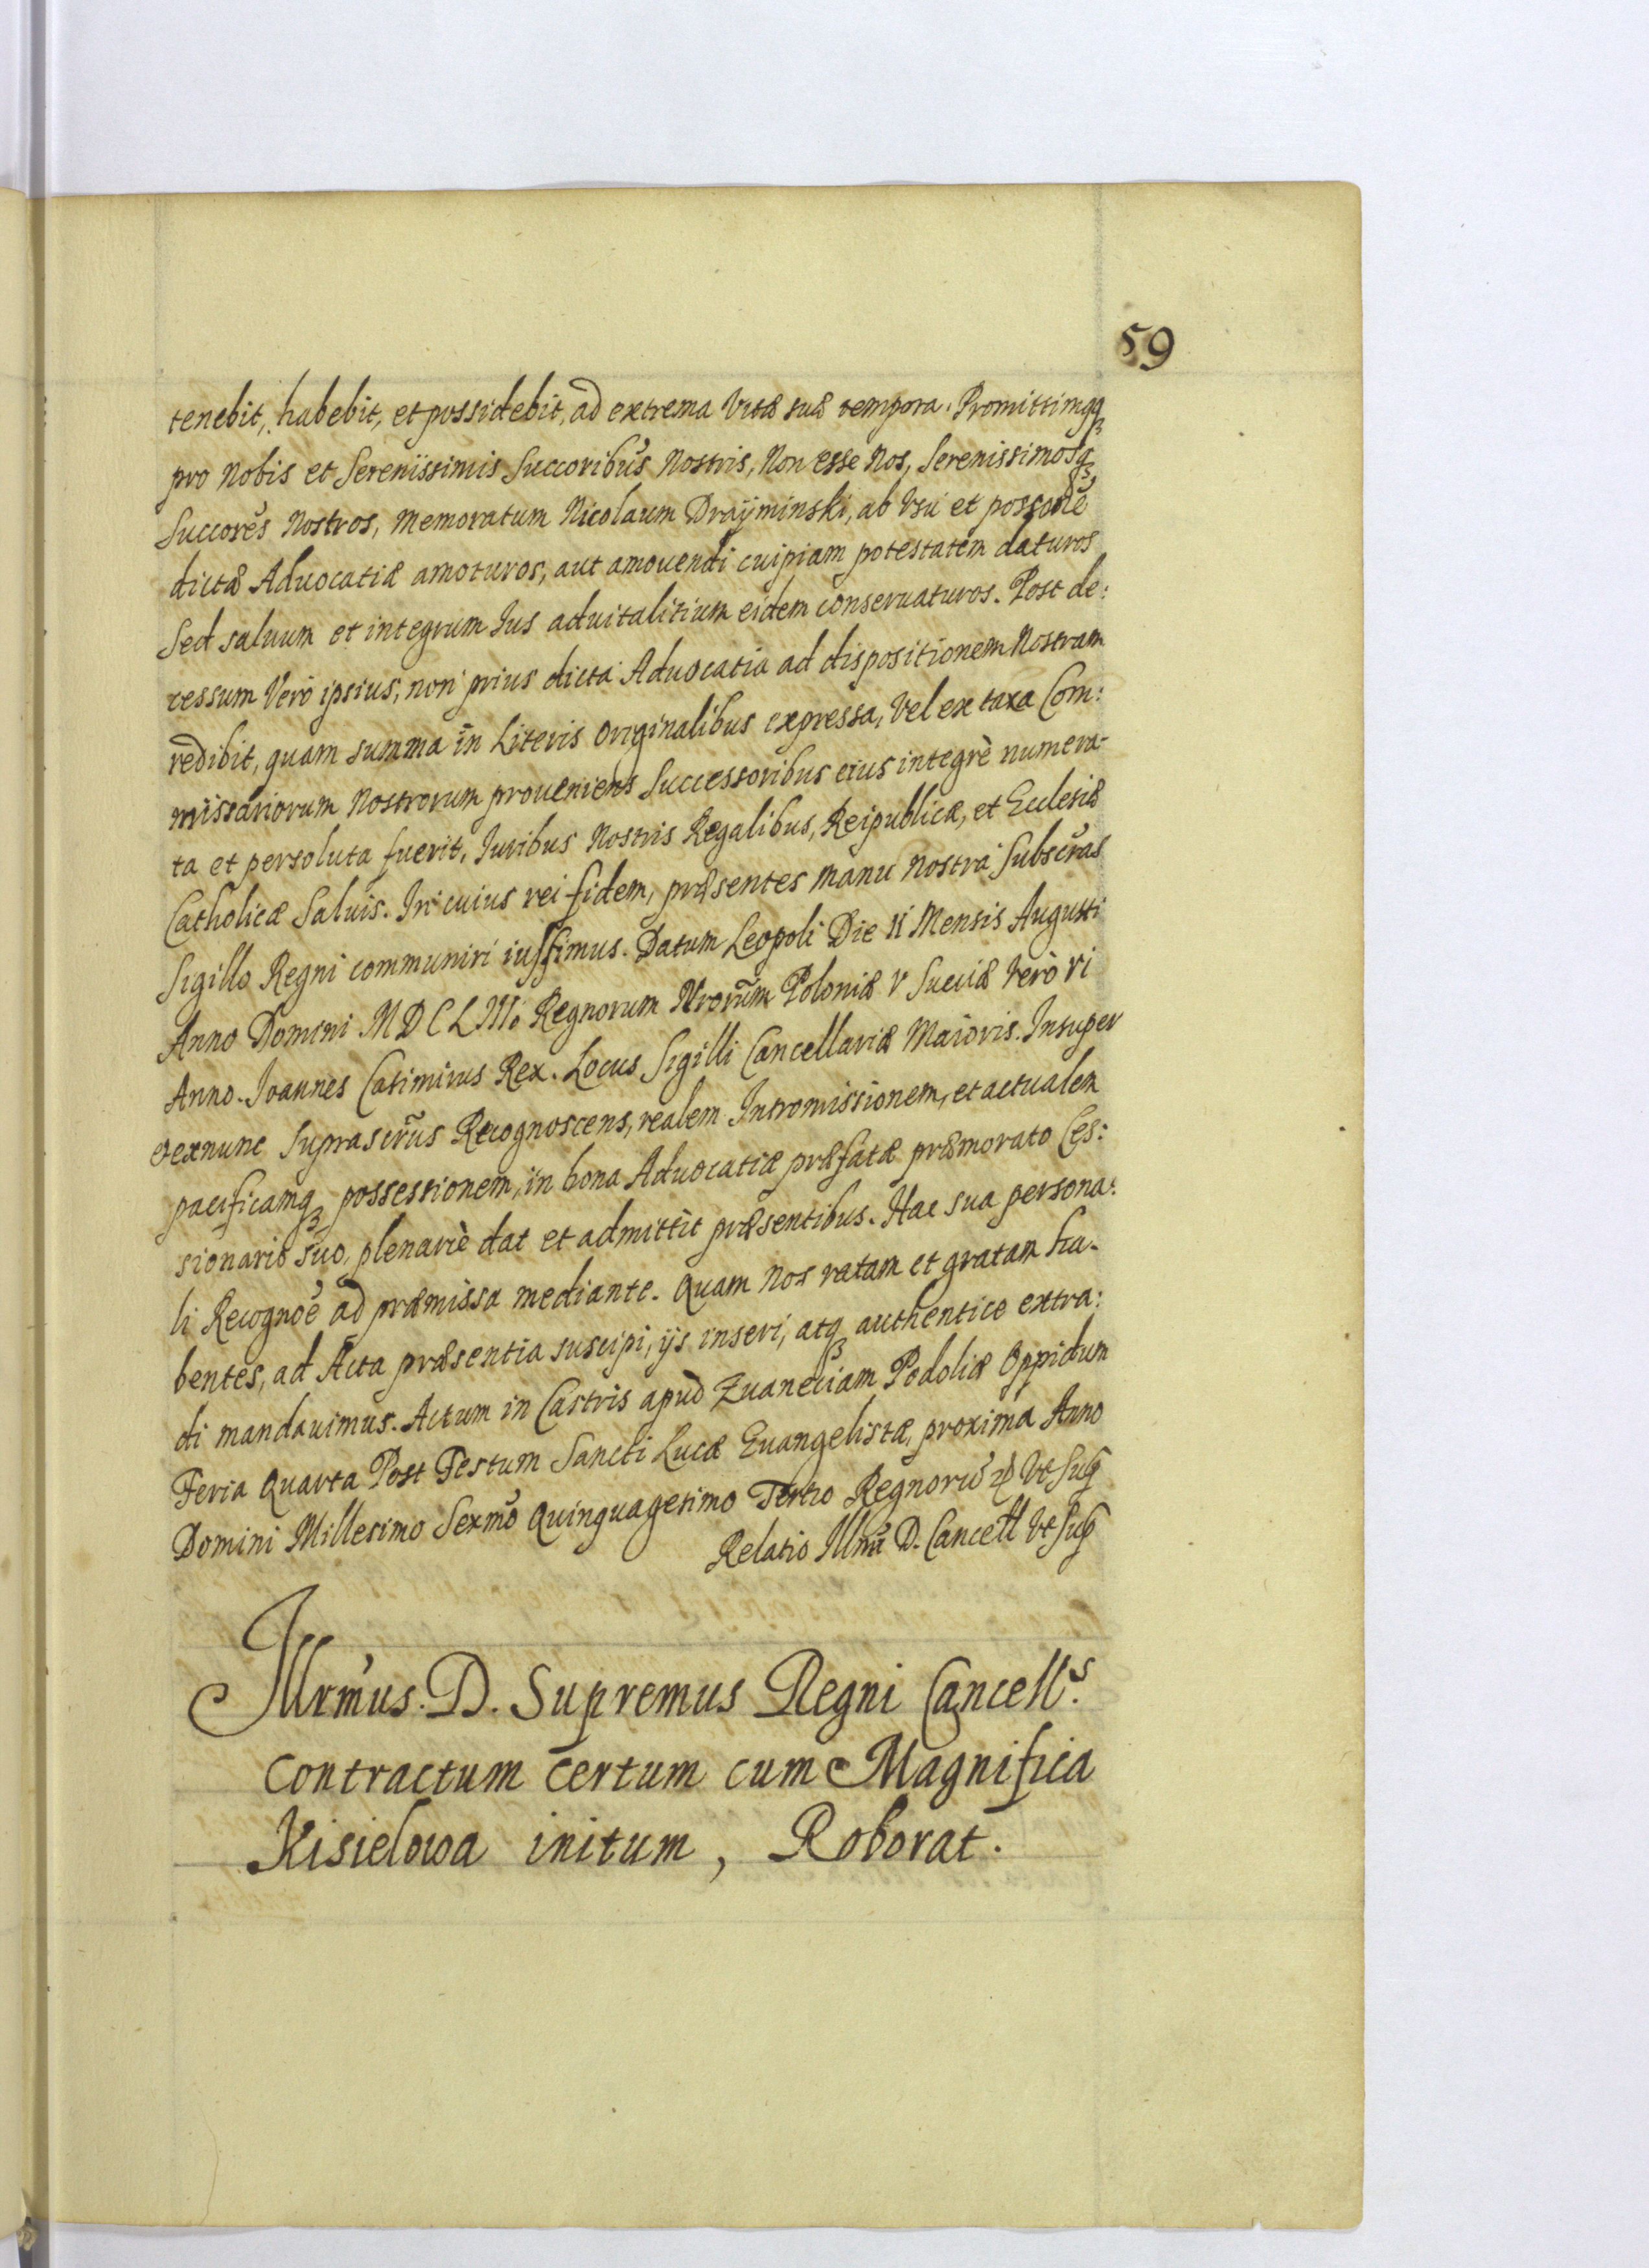 59
tenebit, habebit, et possidebit, ad extrema Vitæ suæ tempora. Promittimqq₃
pro Nobis et Sereniissimis Succoribus Nostris, Non esse Nos, Serenissimosq₃
Succores Nostros, Memoratum Nicolaum Drayminski, ab Vsu et possone
dictæ Aduocatiæ amoturos, aut amouendi cuipiam potestatem daturos
Sed saluum et integrum Ius aduitalitium eidem conseruaturos. Post de:
cessum Verò ipsius, non prius dicta Aduocatia ad dispositionem Nostram
redibit, quam summa in Literis Originalibus expressa, Vel ex taxa Com:
missariorum Nostrorum proueniens Successoribus eius integrè numera-
ta et persoluta fuerit, Iuribus Nostris Regalibus, Reipublicæ, et Ecclesiæ
Catholicæ Saluis. In cuius rei fidem, præsentes Manu Nostra Subscras
Sigillo Regni communiri iussimus. Datum Leopoli Die II Mensis Augusti
Anno Domini MDCLIII. Regnorum Nrorum Poloniæ V Sueciæ Verò VI
Anno. Ioannes Casimirus Rex. Locus Sigilli Cancellariæ Maioris. Insuper
exnunc Suprascrus Recognoscens, realem Intromissionem, et actualem
pacificamq₃ possessionem, in bona Aduocatiæ præfatæ præmorato Ces:
sionario suo, plenariè dat et admittit præsentibus. Hac sua persona:
li Recognoe ad præmissa mediante. Quam Nos ratam et gratam ha-
bentes, ad Acta præsentia suscipi, ijs inseri, atq₃ authentice extra:
di mandauimus. Actum in Castris apud Zuaneciam Podoliæ Oppidum
Feria Quarta Post Festum Sancti Lucæ Euangelistæ, proxima Anno
Domini Millesimo Sexmo Quinquagesimo Tertio Regnoru Vt Sup
Relatio Illmi D. Cancell Vt Sup
Illrmus. D. Supremus Regni Cancellˢ.
Contractum certum cum Magnifica
Kisielowa initum, Roborat.